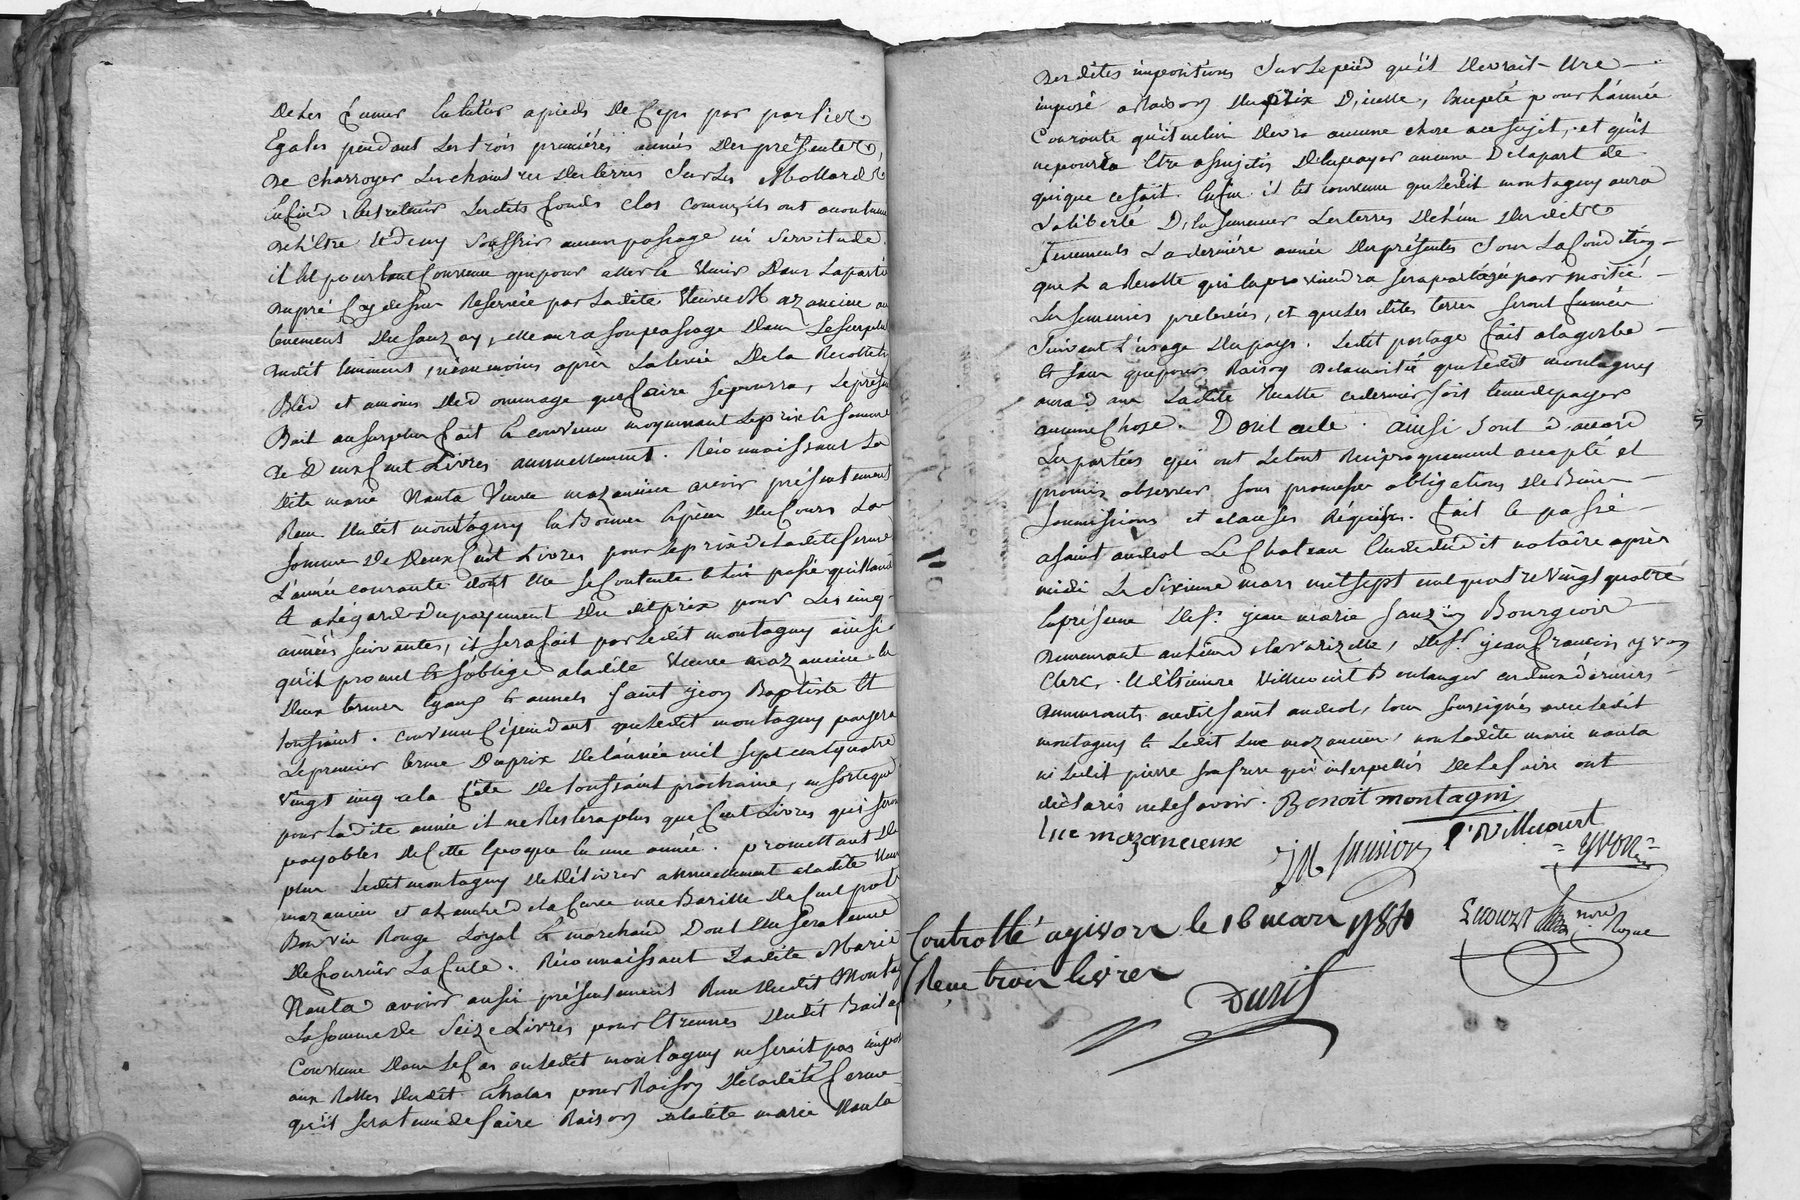 de les fumer en hiver a pieds de Ceps par parties
Egales pendant les trois premières années des présentes,
de charroyer les chaintres des terres sur les Mollards
Enfin d'entretenir lesdits fonds clos comme ils ont accoutumé
de l'Etre et d'eny souffrir aucun passage ni servitude.
il est pourtant Convenu que pour aller et venir dans la partie
du pré Cy dessus Reservée par ladite Veuve Mazancieu au
tenement du sauzay, elle aura son passage dans le surplus
dudit tenement, néanmoins après la levée de la Recolte
Bled et amoins de dommage que faire se pourra, le présent
Bail au surplus fait et convenu moyennant le prix et somme
de deux Cent Livres annuellement. Réconnaissant la
dite marie Nanta Veuve mazancieu avoir présentement
Reçu dudit montagny en Bonnes Espèces de Cours la
somme de deux Cent Livres pour le prix de ladite ferme
L'année courante dont elle se Contente et l'en passe quittance
Et a l'égard du payement du dit prix pour les cinq
années suivantes, il sera fait par ledit montagny ainsi
qu'il promet et s'oblige a ladite Veuve mazancieu en
deux termes Egaux et annuels saint jean Baptiste et
toussaint. convenu Cépendant que ledit montagny payera
le premier terme du prix de l'année mil sept cent quatre
vingt cinq a la fête de toussaint prochaine, en sorte que
pour ladite année il ne Restera plus que Cent Livres qui seront
payables de Cette Epoque en une année. promettant de
plus ledit montagny de délivrer annuellement a ladite Veuve
mazancieu et a Lanche de la Cuve une Barille de Cent pots
Bon vin Rouge Loyal et marchand dont elle sera tenue
de fournir la futte. Réconnaissant ladite Marie
Nanta avoir aussi présentement Reçu dudit Montagny
La somme de Seize Livres pour Etrennes dudit Bail
Convenu dans le Cas ou ledit montagny ne serait pas imposé
aux Rolles dudit Echalas pour Raison de ladite ferme
qu'il sera tenu de faire Raison a ladite marie Nanta
desdites impositions sur le pied qu'il devrait Etre
imposé a Raison du prix d'icelle, Excepté pour L'année
Courante qu'il ne lui devra aucune chose a ce sujet, et qu'il
ne pourra Etre assujetis d'en payer aucune de la part de
qui que ce soit. Enfin il est convenu que ledit montagny aura
La liberté d'Ensemencer les terres de l'un desdits
tenements la dernière année des présentes sous la Condition
que La Recolte qui en proviendra sera partagée par moitié
les semences prelevées, et que lesdites terres seront fumées
suivant L'usage du pays. ledit partage fait a la gerbe
Et sans que pour Raison de la moitié que ledit montagny
aura dans ladite Recolte ce dernier soit tenu de payer
aucune Chose. Dont acte. ainsi sont d'accord
les parties qui ont le tout Reciproquement accepté et
promis observer sous promesses obligations de Biens
soumissions et clauses Réquises. fait et passé
a saint andeol Le Chateau Etude dudit notaire après
midi Le Sixieme mars mil sept cent quatre vingt quatre
En présence de Sr. jean marie sauzion Bourgeois
demeurant au lieu de la varizelle, de Sr. jean françois yvon
Clerc, et d'Etienne Villecourt Boulanger ces deux derniers
demeurants audit saint andeol, tous soussignés avec ledit
montagny et ledit luc mazancieu, non ladite marie nanta
ni ledit pierre son frere qui interpellés de le faire ont
déclarés ne le savoir. Benoit montagni
luc mazancieux E Villecourt
JM Sausion = yvon =
Controllé a givors le 16 mars 1784
Reçu trois livres
Duris